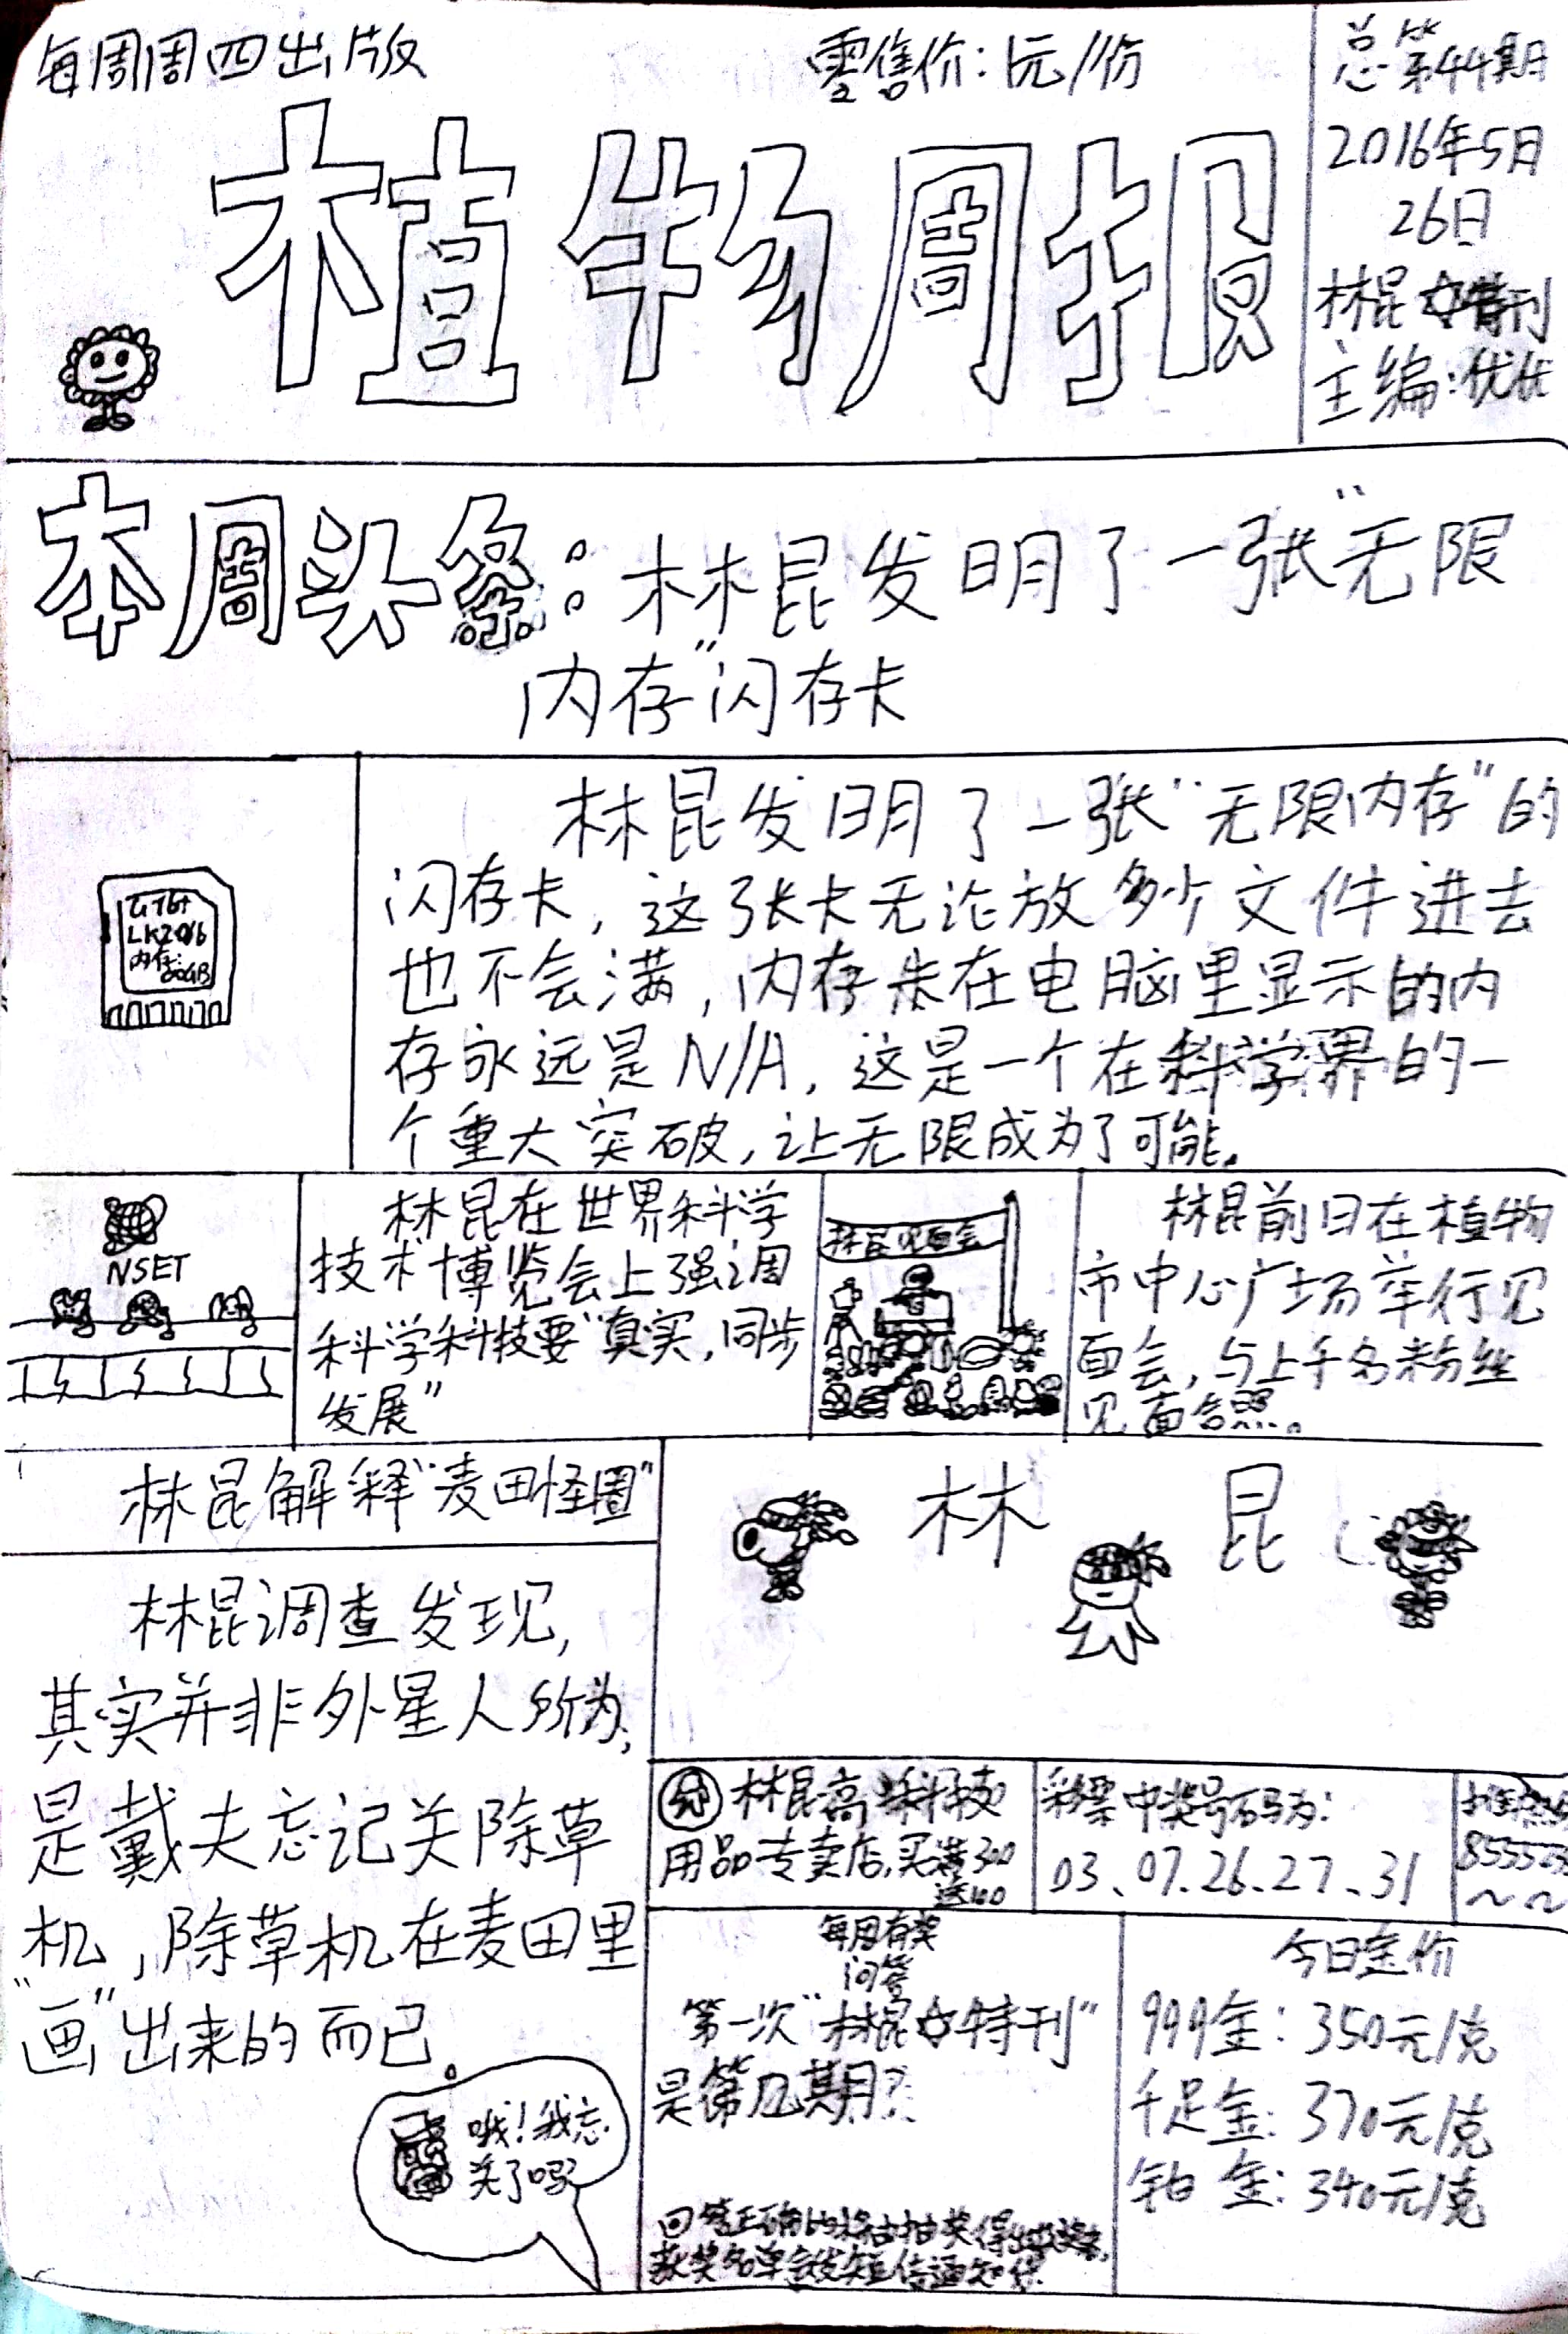 每周周四出版
零售价:1元/份
植物周报
总第44期
2016年5月
26日
林昆☆特刊
主编:优优
本周头条:林昆发明了一张“无限
内存”闪存卡
LK2016
内存:
林昆发明了一张“无限内存”的
闪存卡,这张卡无论放多少文件进去
也不会满,内存卡在电脑里显示的内
存永远是N/A,这是一个在科学界的一
个重大突破,让无限成为了可能。
NSET
林昆在世界科学
技术博览会上强调
科学科技要“真实,同步
发展”
林昆见面会
林昆前日在植物
市中心广场举行见
面会,与上千名粉丝
见面合照。
林昆解释“麦田怪圈”
林昆调查发现,
其实并非外星人所为,
是戴夫忘记关除草
机,除草机在麦田里
“画”出来的而已。
哦!我忘
关了吗?
林 昆
林昆高科技
用品专卖店,买满300
送100
彩票中奖号码为:
03、07.26.27、31
~~
每周有奖
问答
第一次“林昆☆特刊”
是第几期?
获奖名单会发短信通知您
今日金价
999金:350元/克
千足金:370元/克
铂金:340元/克